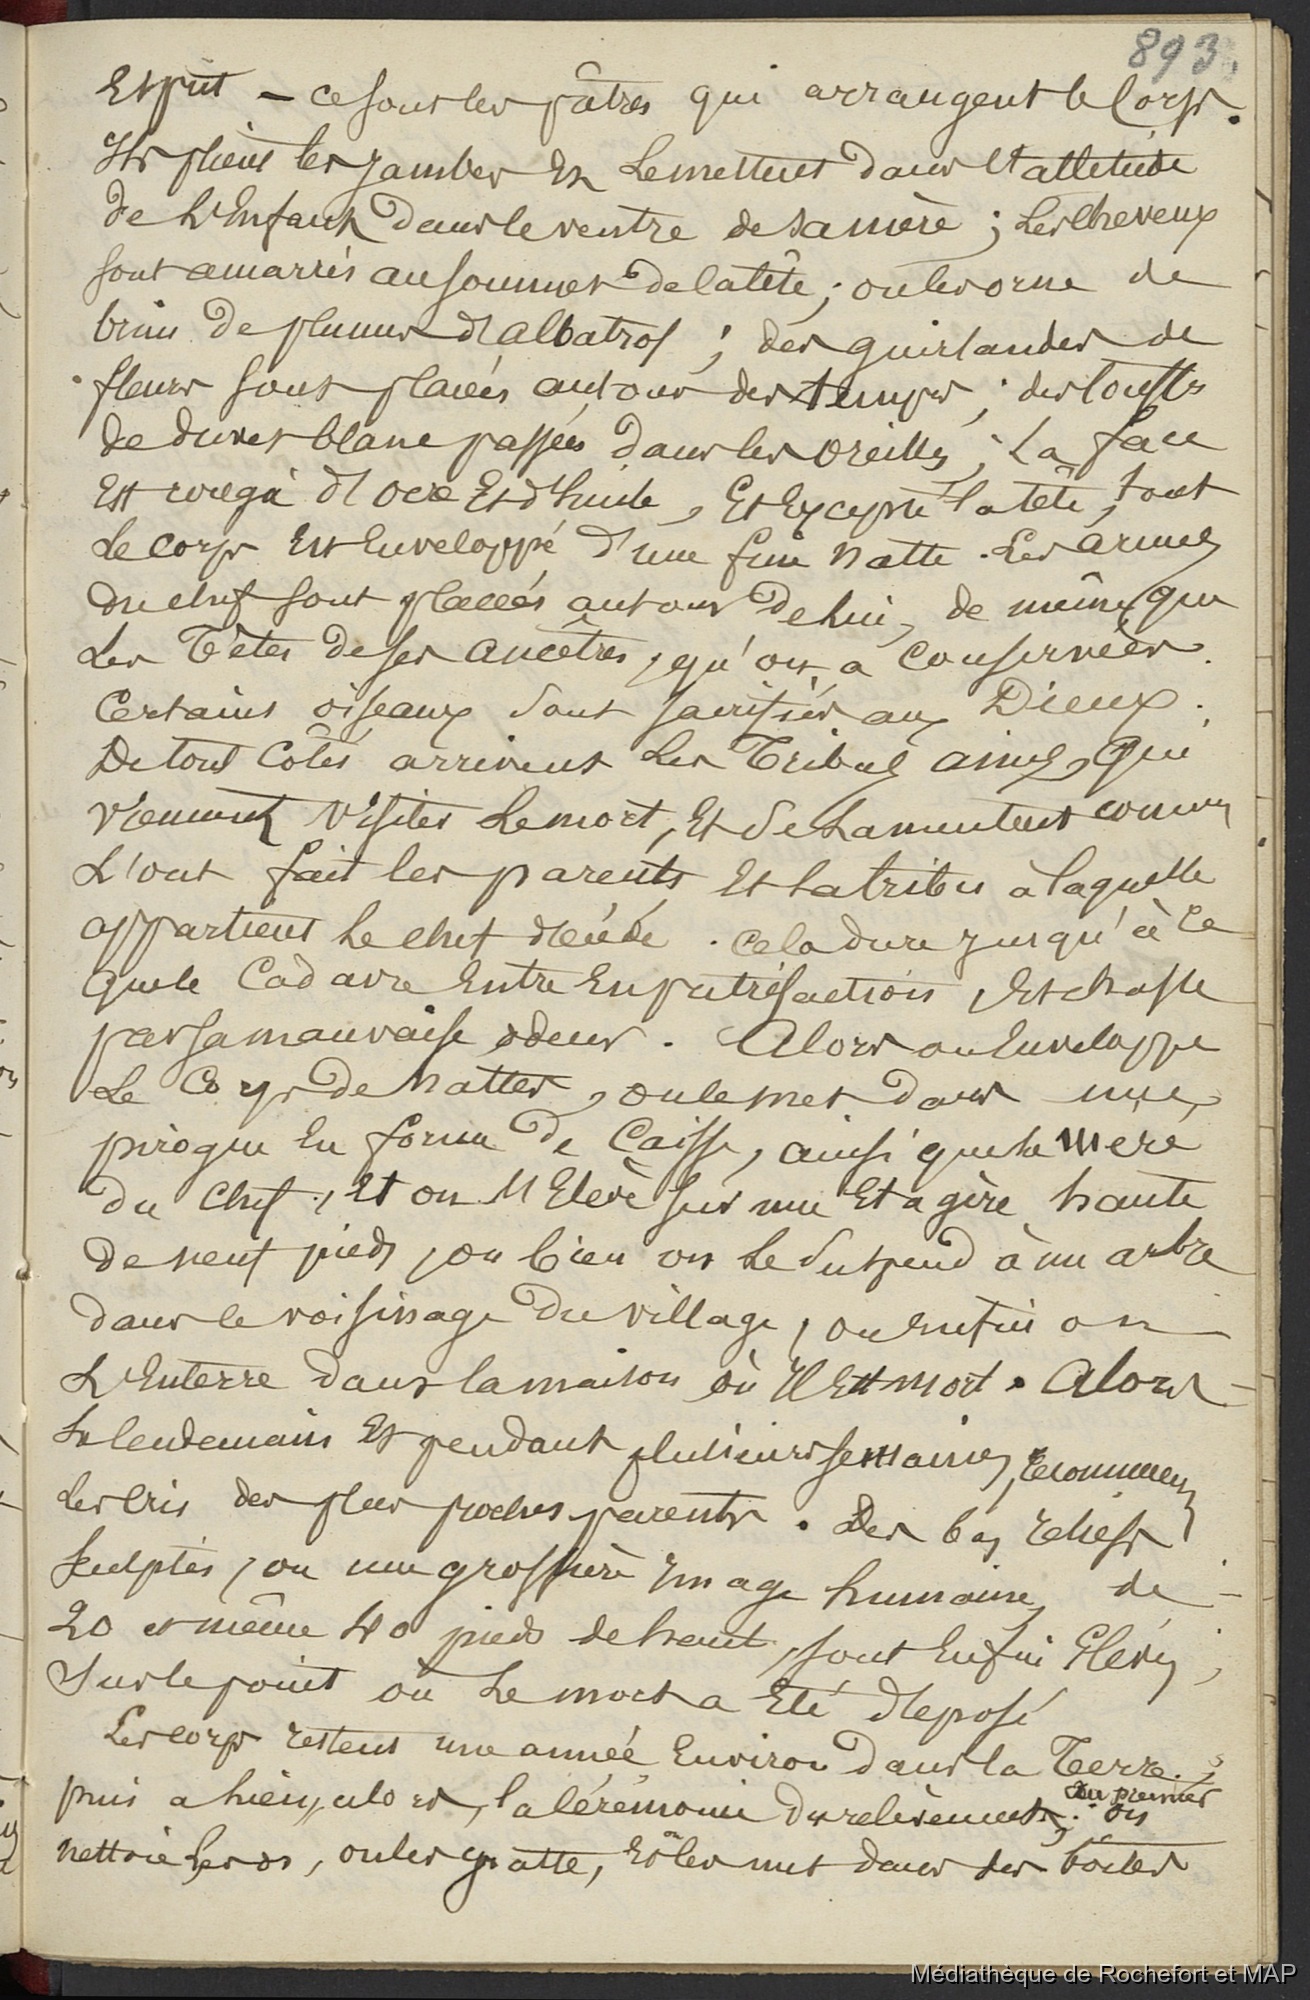 893.
Esprit — ce sont les pâtres qui arrangent le Corps.
Ils plient les jambes Et Le mettent dans l'attetude
de L'Enfant dans le ventre de sa mère ; Les Cheveux
sont amarrés au sommet de la tête ; on les orne de
brins de plumes d'albatros ; des guirlandes de
fleurs sont placées autour des tempes ; des touffes
de duvet blanc passées dans les oreilles ; La face
Est rougie d'ocre Et d'huile, Et Excepté la tête, tout
Le corps Est Enveloppé d'une fine natte. Les armes
du chef sont placées autour de lui, de même que
Les Têtes de ses ancêtres, qu'on a Conservées.
Certains oiseaux sont sacrifiés aux Dieux.
De tous Côtés arrivent Les Tribus amies, que
viennent visiter Le mort, Et se Lamentent comme
L'ont fait les parents Et la tribu à laquelle
appartient Le chef décédé. Cela dure jusqu'à ce
que le Cadavre Entre En putréfaction, Et chasse
par sa mauvaise odeur. Alors on Enveloppe
Le Corps de nattes, on le met dans une
pirogue En forme de Caisse, ainsi que la mère
du Chef, Et on l'Elève sur une Etagère haute
de neuf pieds, ou bien on Le suspend à un arbre
dans le voisinage du village, ou enfin on
L'Enterre dans la maison où Il Est mort. Alors
Le lendemain Et pendant plusieurs semaines, recommencent
Les Cris des plus proches parents. Des bas reliefs
sculptés, ou une grossière Image humaine, de
20 et même 40 pieds de haut, sont Enfin Elevés,
Sur le point où Le mort a Eté déposé
Les corps restent une année Environ dans la Terre.;
puis a lieu, alors, la Cérémonie du relèvement;
au premier
on
nettoie Les os, on les gratte, Et on les met dans des boites
Médiathèque de Rochefort et MAP